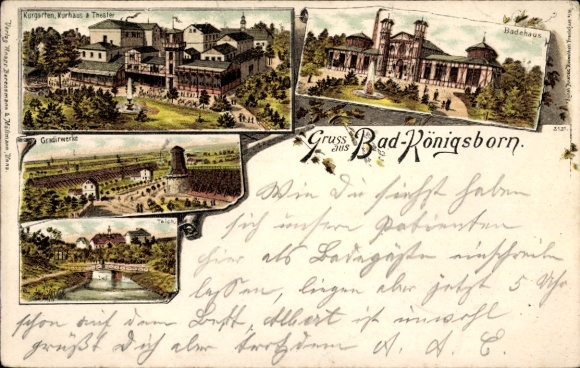 Kurgarten, Kurhaus & Theater
Badehaus
Gruss aus Bad-Königsborn.
Gradirwerke
Teich.
Wie Du siehst haben
sich unsere Patienten
hier als Badegäste einschreiben
lassen, liegen aber jetzt 5 Uhr
schon auf dem Bett, Albert ist unwohl
grüßt Dich aber trotzdem A. A. C.